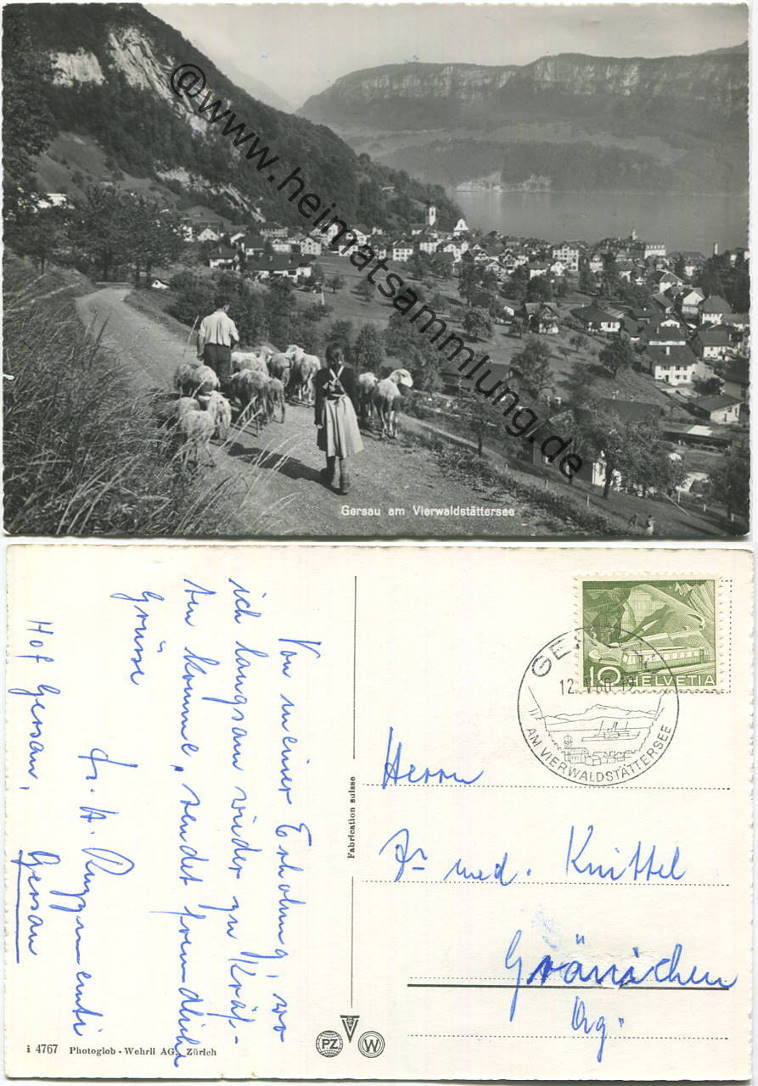 @www.heimatsammlung.de
Gersau am Vierwaldstättersee
Von meiner Erholung, wo
ich langsam wieder zu Kräf-
ten komme, sendet freundliche
Grüsse
Fr. H.
Hof Gersau,
Gersau
Fabrication suisse
GERSAU
12. 60. 18
AM VIERWALDSTÄTTERSEE
10 HELVETIA
Herrn
Dr med. Knittel
Gränichen
Arg.
i 4767 Photoglob - Wehrli AG., Zürich
PZ W